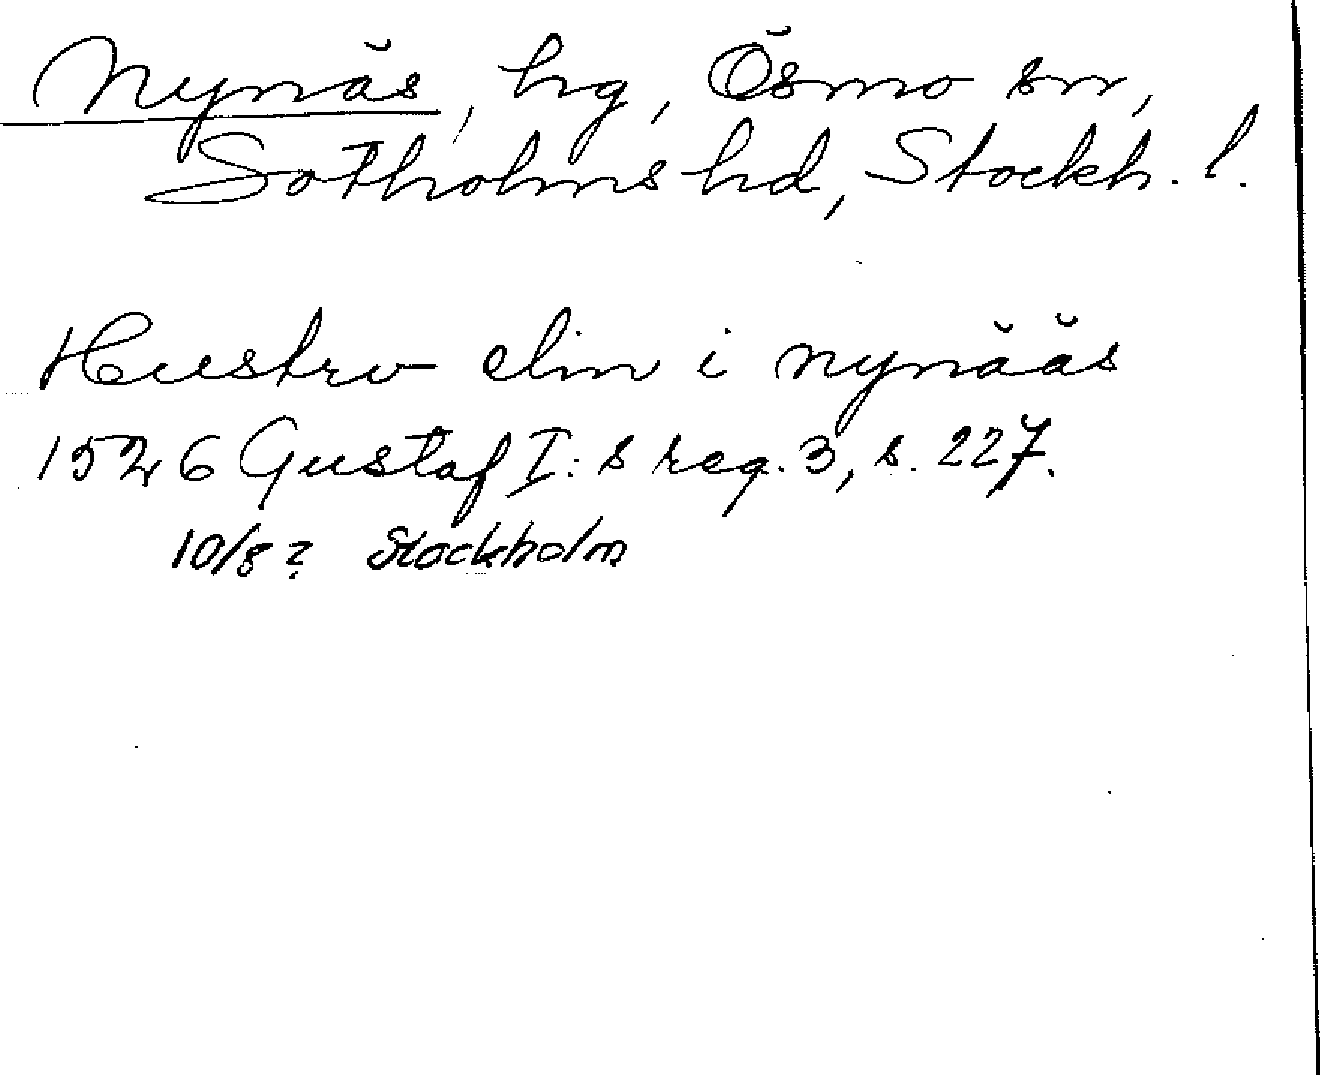 Nynäs, hg, Ösmo sn,
Sotholms hd, Stockh. l.
Hustrv elin i nynääs
1526 Gustaf I:s reg. 3, s. 227.
10/8? Stockholm